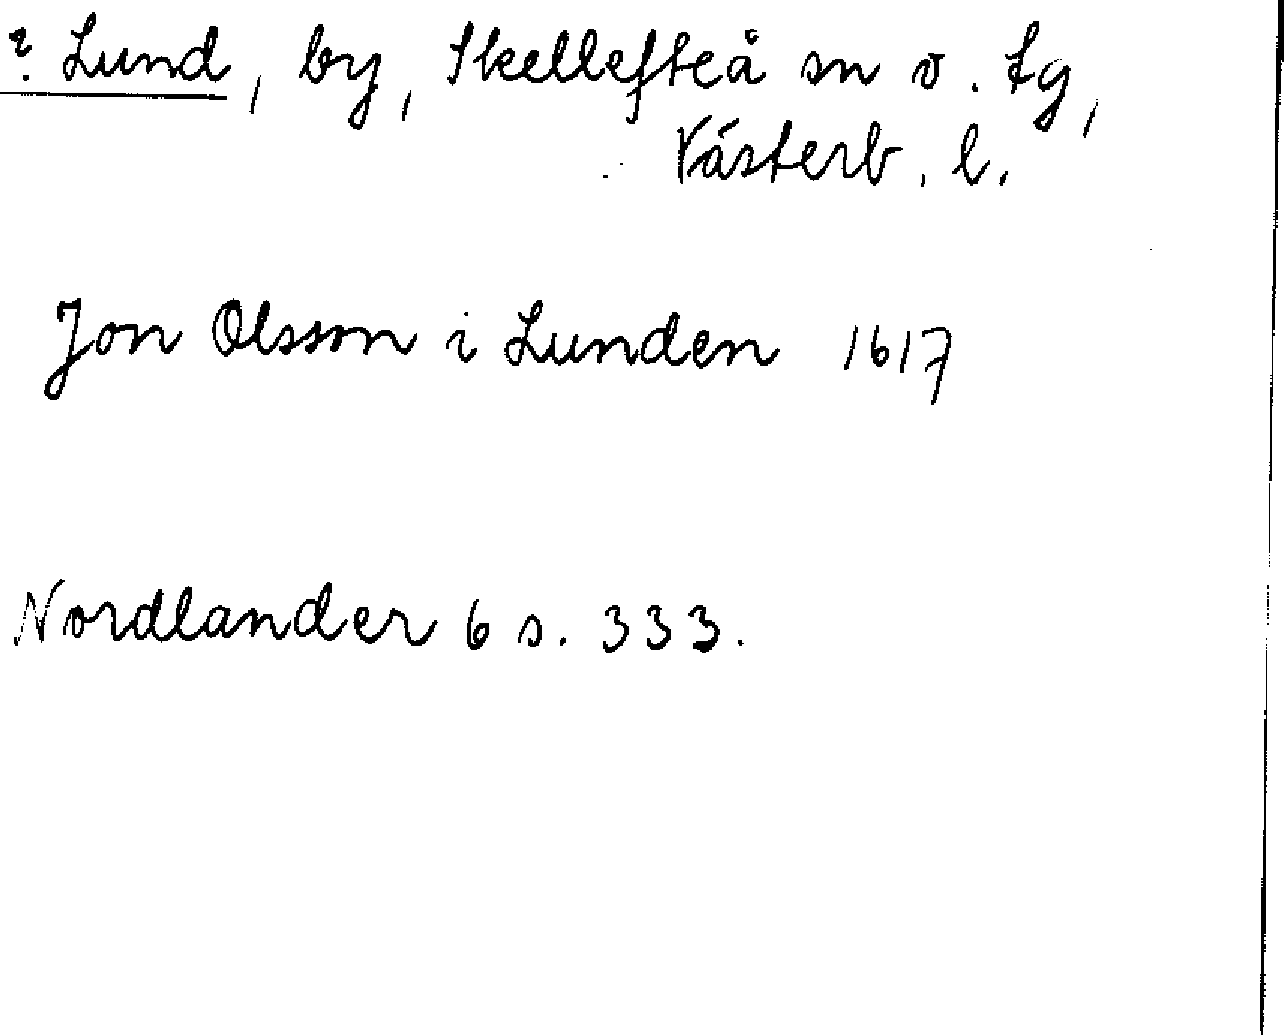 ? Lund, by, Skellefteå sn v. tg,
Västerb. l.
Jon Olsson i Lunden 1617
Nordlander 6 s. 333.